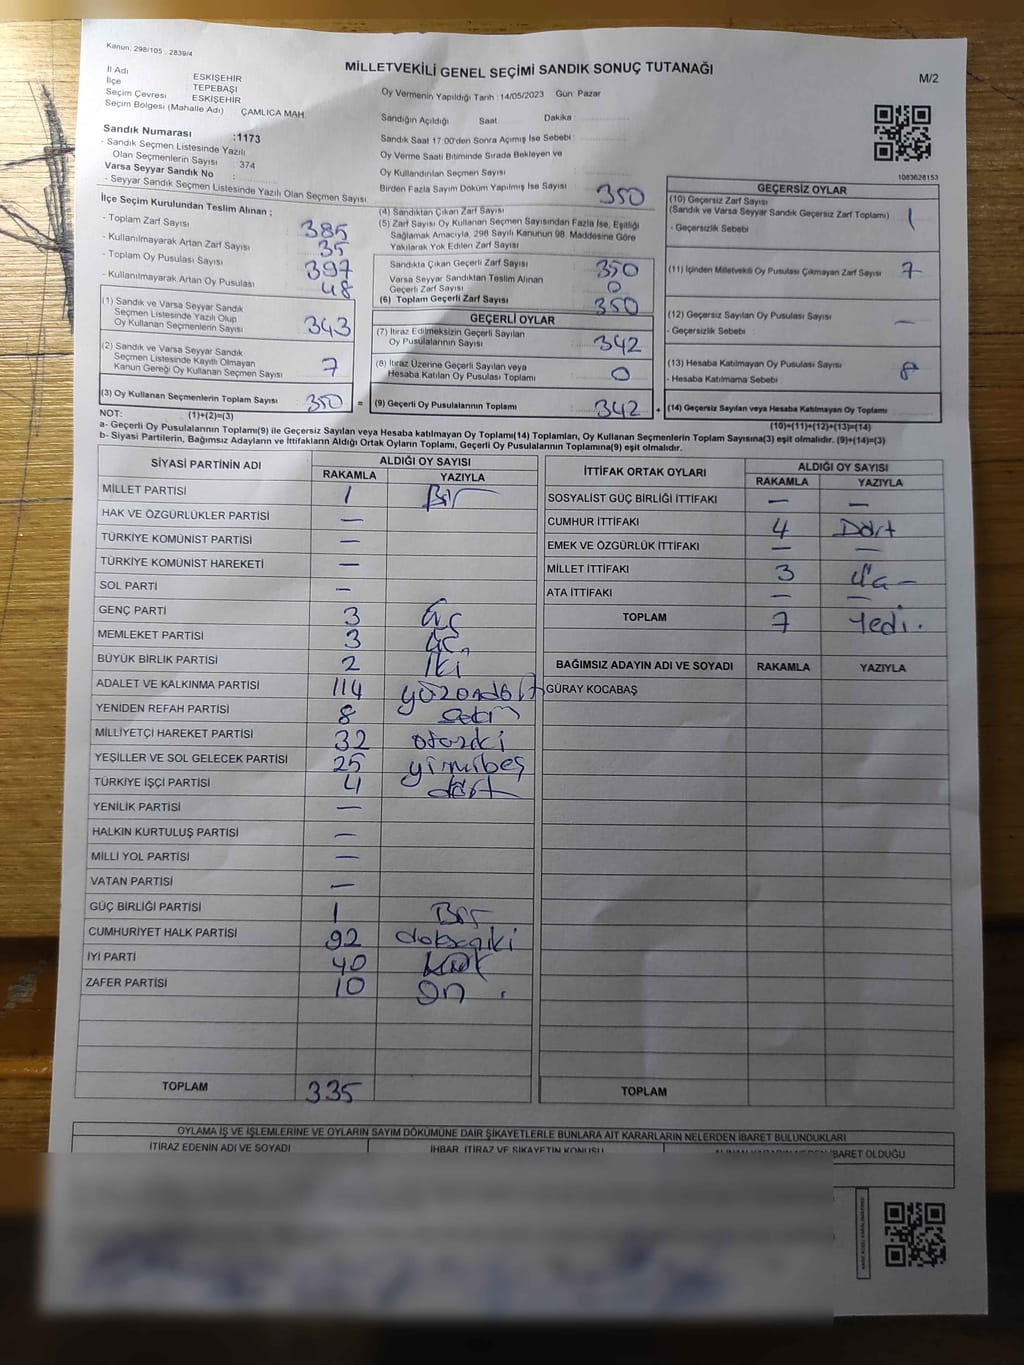 Kanun, 298/105 , 2839/4
MİLLETVEKİLİ GENEL SEÇİMİ SANDIK SONUÇ TUTANAĞI
M/2
İl Adı ESKİŞEHİR
İlçe TEPEBAŞI
Seçim Çevresi ESKİŞEHİR
Seçim Bölgesi (Mahalle Adı) ÇAMLICA MAH.
Sandık Numarası :1173
- Sandık Seçmen Listesinde Yazılı
Olan Seçmenlerin Sayısı : 374
Varsa Seyyar Sandık No :
- Seyyar Sandık Seçmen Listesinde Yazılı Olan Seçmen Sayısı
Oy Vermenin Yapıldığı Tarih : 14/05/2023 Gün: Pazar
Sandığın Açıldığı Saat Dakika :
Sandık Saat 17:00'den Sonra Açımış İse Sebebi :
Oy Verme Saati Bitiminde Sırada Bekleyen ve
Oy Kullandırılan Seçmen Sayısı :
Birden Fazla Sayım Döküm Yapılmış İse Sayısı
1083628153
İlçe Seçim Kurulundan Teslim Alınan ;
- Toplam Zarf Sayısı 385
- Kullanılmayarak Artan Zarf Sayısı 35
- Toplam Oy Pusulası Sayısı 397
- Kullanılmayarak Artan Oy Pusulası 48
(1) Sandık ve Varsa Seyyar Sandık
Seçmen Listesinde Yazılı Olup
Oy Kullanan Seçmenlerin Sayısı 343
(2) Sandık ve Varsa Seyyar Sandık
Seçmen Listesinde Kayıtlı Olmayan
Kanun Gereği Oy Kullanan Seçmen Sayısı 7
(3) Oy Kullanan Seçmenlerin Toplam Sayısı 350 =
(4) Sandıktan Çıkan Zarf Sayısı 350
(5) Zarf Sayısı Oy Kullanan Seçmen Sayısından Fazla İse, Eşitliği
Sağlamak Amacıyla, 298 Sayılı Kanunun 98. Maddesine Göre
Yakılarak Yok Edilen Zarf Sayısı
Sandıkta Çıkan Geçerli Zarf Sayısı 350
Varsa Seyyar Sandıktan Teslim Alınan
Geçerli Zarf Sayısı 0
(6) Toplam Geçerli Zarf Sayısı 350
GEÇERLİ OYLAR
(7) İtiraz Edilmeksizin Geçerli Sayılan
Oy Pusulalarının Sayısı 342
(8) İtiraz Üzerine Geçerli Sayılan veya
Hesaba Katılan Oy Pusulası Toplamı 0
(9) Geçerli Oy Pusulalarının Toplamı 342 +
GEÇERSİZ OYLAR
(10) Geçersiz Zarf Sayısı
(Sandık ve Varsa Seyyar Sandık Geçersiz Zarf Toplamı) 1
- Geçersizlik Sebebi :
(11) İçinden Milletvekili Oy Pusulası Çıkmayan Zarf Sayısı 7
(12) Geçersiz Sayılan Oy Pusulası Sayısı —
- Geçersizlik Sebebi :
(13) Hesaba Katılmayan Oy Pusulası Sayısı 8
- Hesaba Katılmama Sebebi :
(14) Geçersiz Sayılan veya Hesaba Katılmayan Oy Toplamı
NOT: (1)+(2)=(3) (10)+(11)+(12)+(13)=(14)
a- Geçerli Oy Pusulalarının Toplamı(9) ile Geçersiz Sayılan veya Hesaba Katılmayan Oy Toplamı(14) Toplamları, Oy Kullanan Seçmenlerin Toplam Sayısına(3) eşit olmalıdır. (9)+(14)=(3)
b- Siyasi Partilerin, Bağımsız Adayların ve İttifakların Aldığı Ortak Oyların Toplamı, Geçerli Oy Pusulalarının Toplamına(9) eşit olmalıdır.
SİYASİ PARTİNİN ADI ALDIĞI OY SAYISI
RAKAMLA YAZIYLA
MİLLET PARTİSİ 1 Bir
HAK VE ÖZGÜRLÜKLER PARTİSİ —
TÜRKİYE KOMÜNİST PARTİSİ —
TÜRKİYE KOMÜNİST HAREKETİ —
SOL PARTİ —
GENÇ PARTİ 3 üç
MEMLEKET PARTİSİ 3 üç
BÜYÜK BİRLİK PARTİSİ 2 iki
ADALET VE KALKINMA PARTİSİ 114 yüzondört
YENİDEN REFAH PARTİSİ 8 sekiz
MİLLİYETÇİ HAREKET PARTİSİ 32 otuziki
YEŞİLLER VE SOL GELECEK PARTİSİ 25 yirmibeş
TÜRKİYE İŞÇİ PARTİSİ 4 dört
YENİLİK PARTİSİ —
HALKIN KURTULUŞ PARTİSİ —
MİLLİ YOL PARTİSİ —
VATAN PARTİSİ —
GÜÇ BİRLİĞİ PARTİSİ 1 Bir
CUMHURİYET HALK PARTİSİ 92 doksaniki
İYİ PARTİ 40 kırk
ZAFER PARTİSİ 10 on
TOPLAM 335
İTTİFAK ORTAK OYLARI ALDIĞI OY SAYISI
RAKAMLA YAZIYLA
SOSYALİST GÜÇ BİRLİĞİ İTTİFAKI — —
CUMHUR İTTİFAKI 4 Dört
EMEK VE ÖZGÜRLÜK İTTİFAKI — —
MİLLET İTTİFAKI 3
ATA İTTİFAKI — —
TOPLAM 7 Yedi.
BAĞIMSIZ ADAYIN ADI VE SOYADI RAKAMLA YAZIYLA
GÜRAY KOCABAŞ
TOPLAM
OYLAMA İŞ VE İŞLEMLERİNE VE OYLARIN SAYIM DÖKÜMÜNE DAİR ŞİKAYETLERLE BUNLARA AİT KARARLARIN NELERDEN İBARET BULUNDUKLARI
İTİRAZ EDENİN ADI VE SOYADI İHBAR, İTİRAZ VE ŞİKAYETİN KONUSU İBARET OLDUĞU